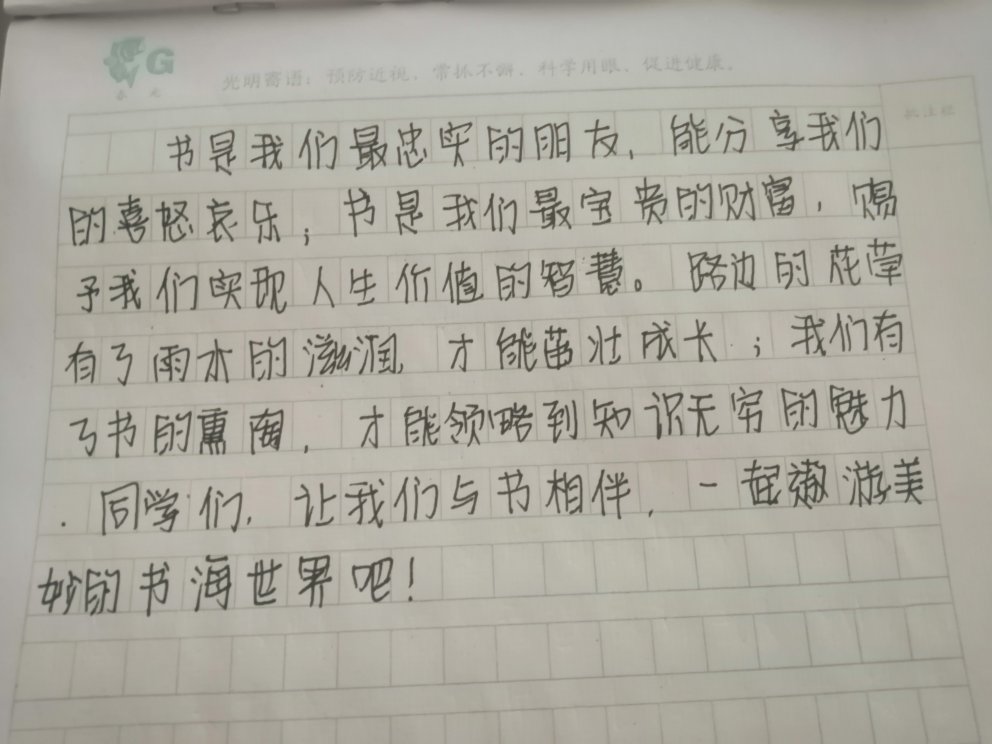 G
春光
光明寄语：预防近视，常抓不懈，科学用眼，促进健康。
批注栏
书是我们最忠实的朋友，能分享我们
的喜怒哀乐；书是我们最宝贵的财富，赐
予我们实现人生价值的智慧。路边的花草
有了雨水的滋润，才能茁壮成长；我们有
了书的熏陶，才能领略到知识无穷的魅力
．同学们，让我们与书相伴，一起遨游美
妙的书海世界吧！